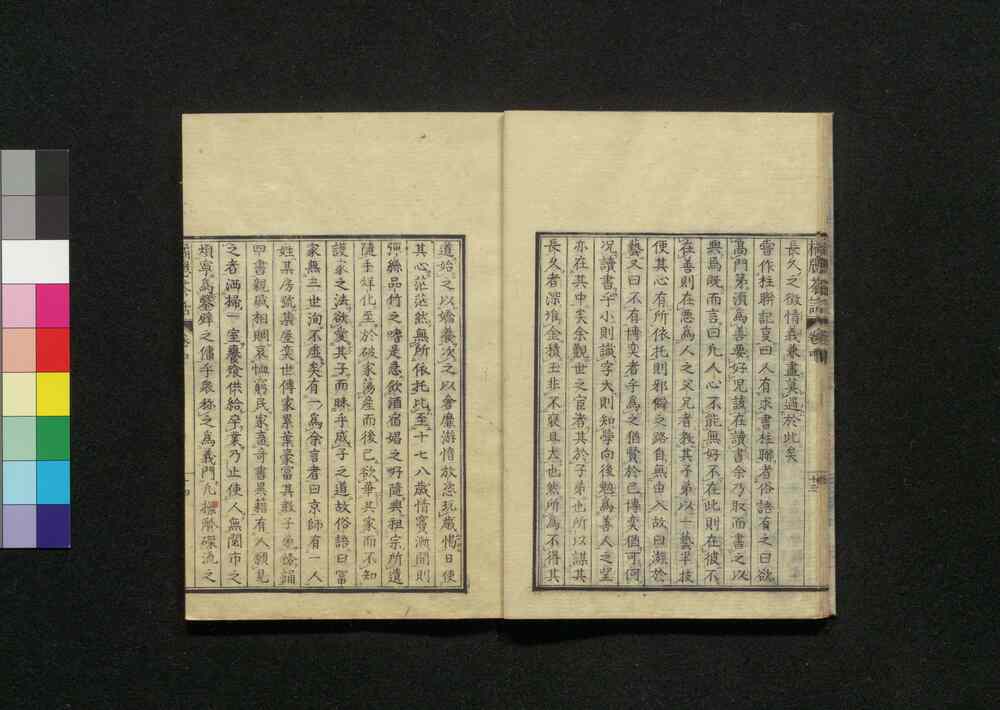 長久之徵情義兼盡莫過於此矣
嘗作柱聯記妄曰人有求書柱聯者俗語有之曰欲
高門第須爲善要好兒孫在讀書余乃取而書之以
與焉既而言曰凡人心不能無好不在此則在彼不
在善則在惡爲人之父兄者敎其子弟以一藝半技
使其心有所依托則邪僻之路自無由入故曰游於
藝又曰不有博奕者乎爲之猶賢於已博奕猶可何
况讀書乎小則識字大則知學向後勉爲善人之望
亦在其中矣余觀世之宦者其於子弟也所以謀其
長久者深堆金積玉非不裒且大也然所爲不得其
道始之以嬌養次之以會廉游惰放恣玩歲愒日使
其心茫茫然無所依托比至十七八歲情竇漸開則
彈絲品竹之嗜是悉飲酒宿娼之好隨興祖宗所遺
隨手烊化至於破家蕩產而後已欲華其家而不知
護家之法欲愛其子而昧乎戚子之道故俗語曰富
家無三世洵不虛矣有一爲余言者曰京師有一人
姓某房號集屋奕世傳家累葉豪富其數子 誦
四書親戚相賙哀恤窮民家畜奇書異籍有人願見
之者洒掃一室饔飧供給卒業乃止使人無閱市之
煩寧爲鑿鋅之傭乎衆称之爲義門凡 礫流之
十三